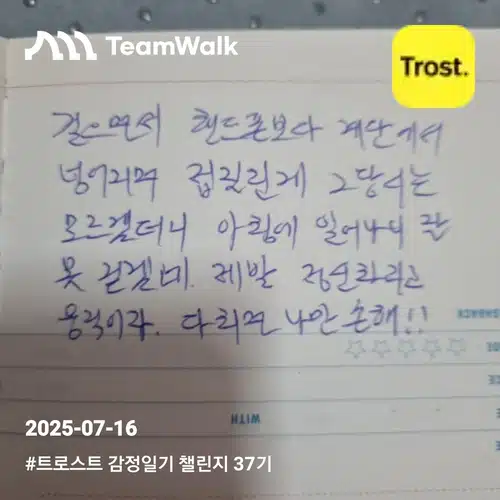 TeamWalk
Trost.
걸으면서 핸드폰보다 계단에서
넘어지며 접질린게 그당시는
모르겠더니 아침에 일어나니 잘
못 걷겠네. 제발 정신차리고
움직이자. 다치면 나만 손해!!
WITH
2025-07-16
#트로스트 감정일기 챌린지 37기